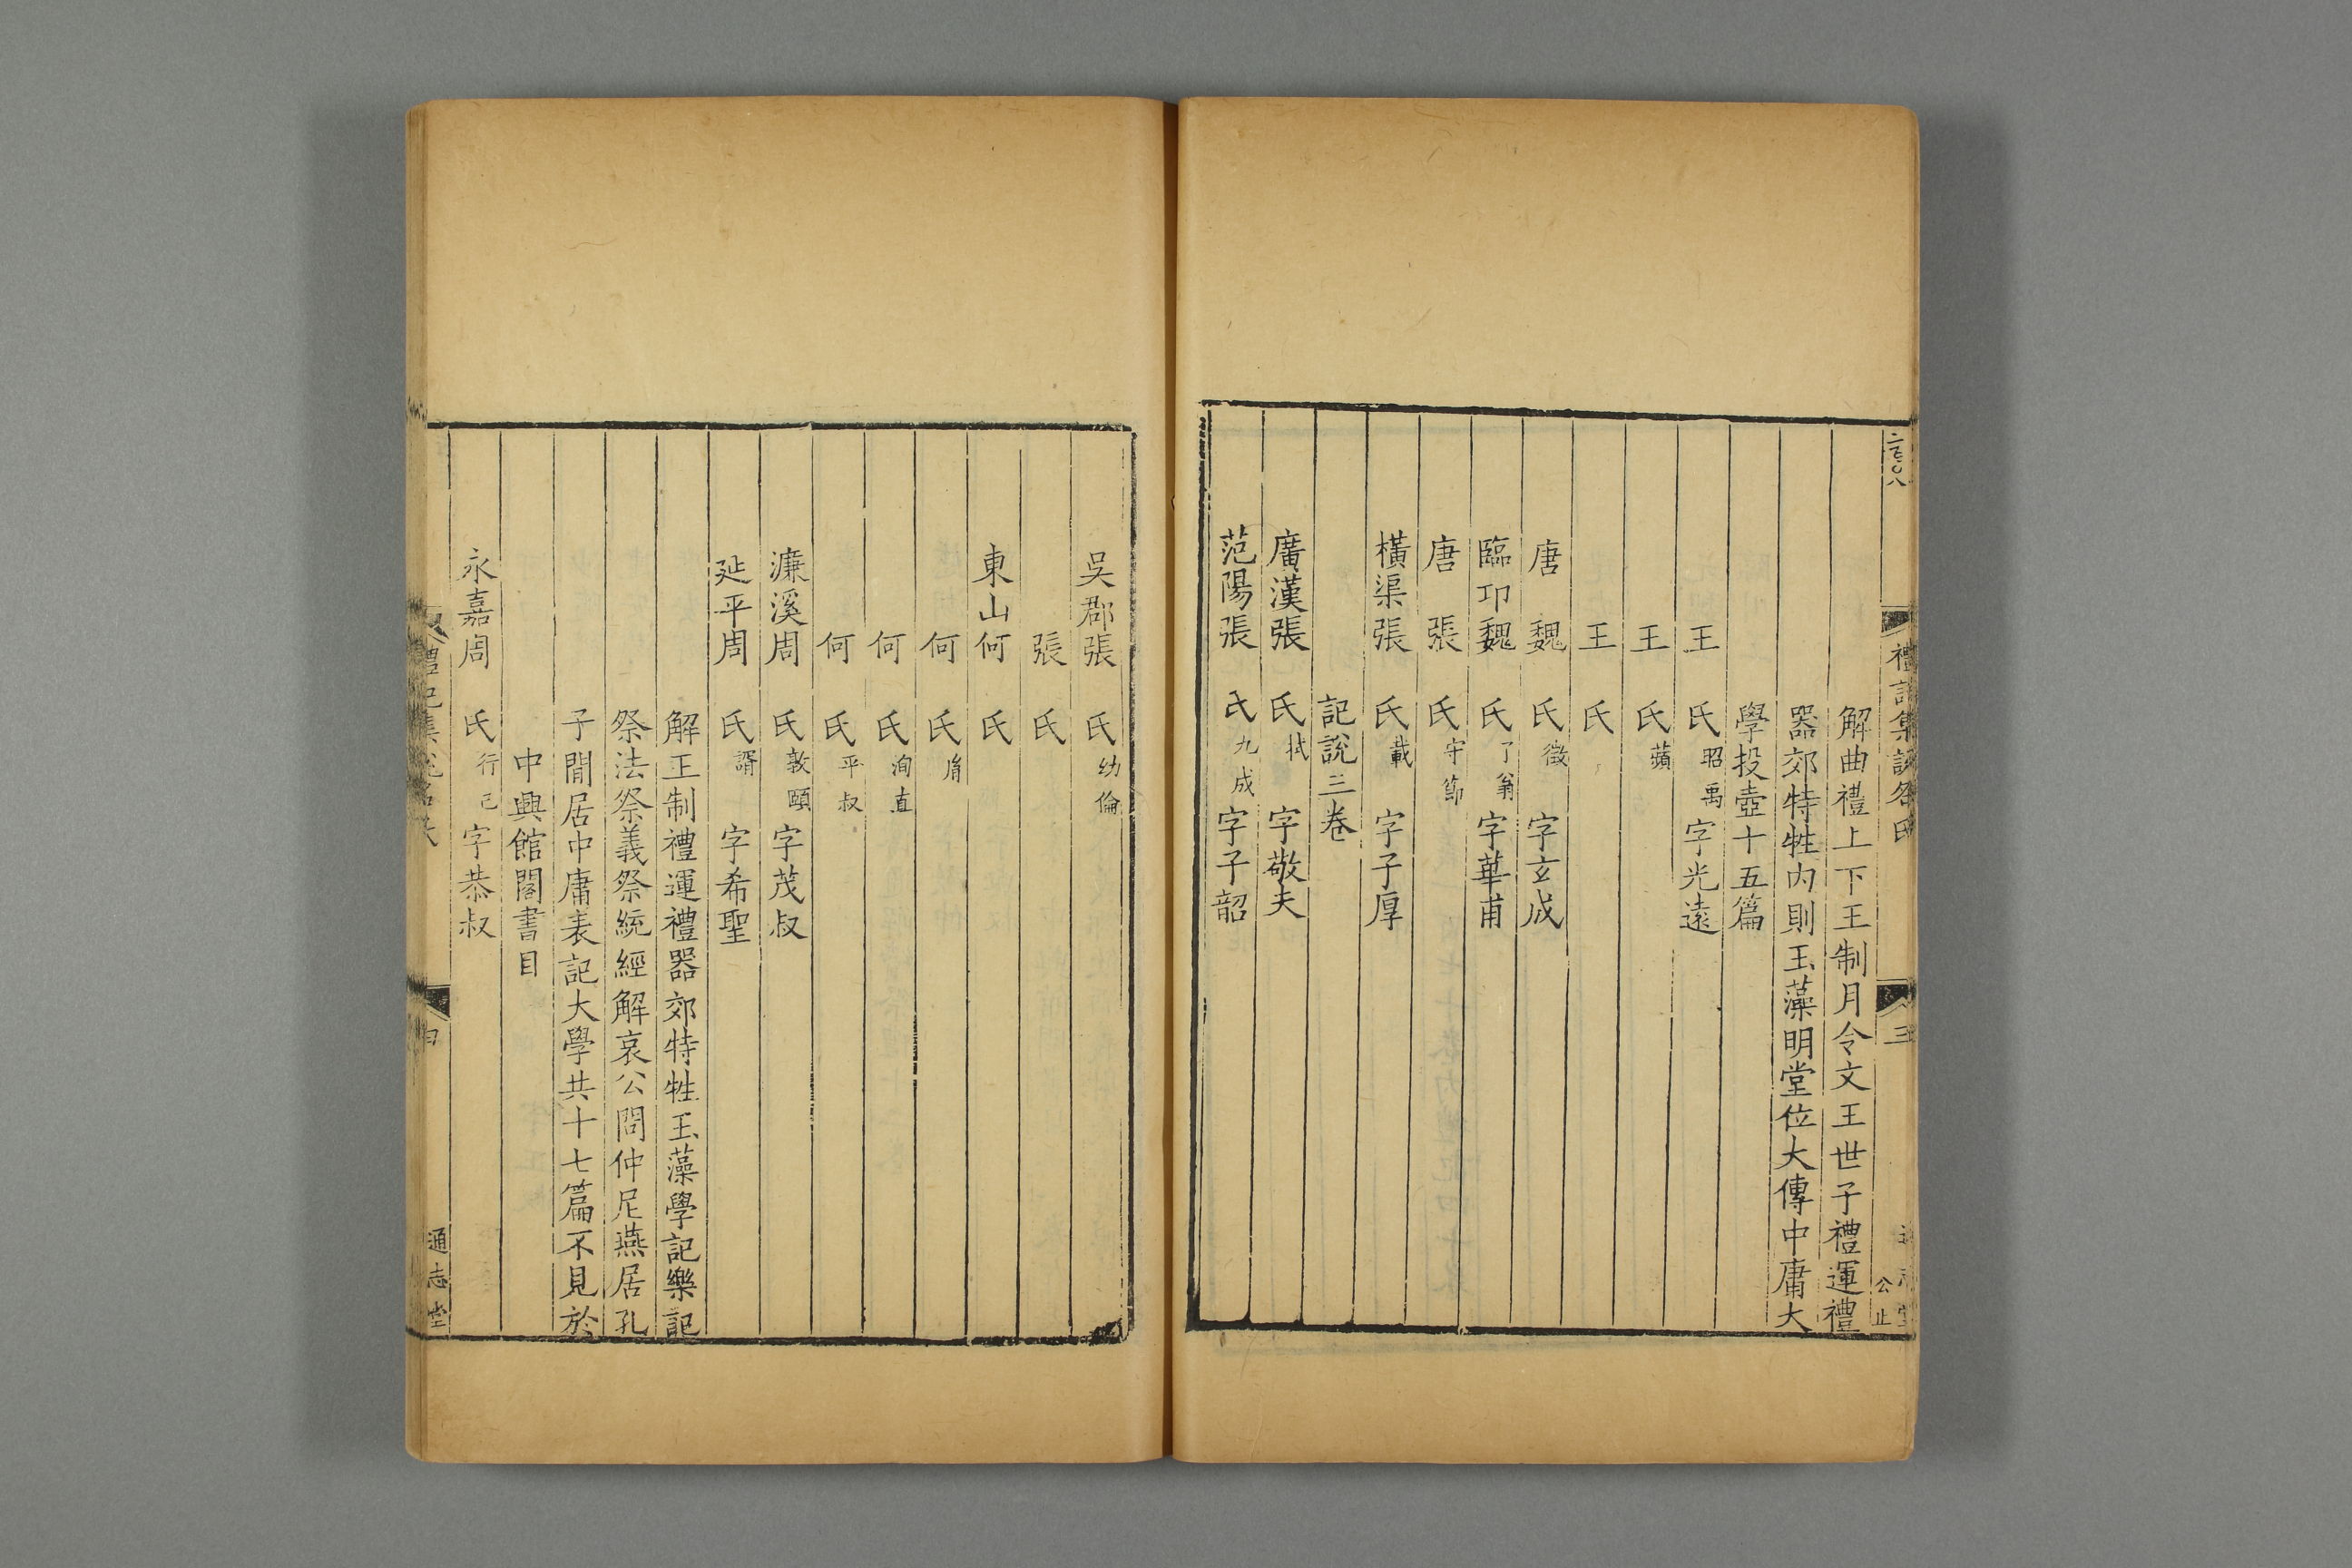 禮記集說名氏
三
公止
解曲禮上下王制月令文王世子禮運禮
器郊特牲內則玉藻明堂位大傳中庸大
學投壺十五篇
王氏昭禹字光遠
王氏蘋
王氏
唐魏氏徵字玄成
臨卭魏氏了翁字華甫
唐張氏守節
橫渠張氏載字子厚
記說三卷
廣漢張氏栻字敬夫
范陽張氏九成字子韶
吳郡張氏幼倫
張氏
東山何氏
何氏胤
何氏洵直
何氏平叔
濂溪周氏敦頤字茂叔
延平周氏諝字希聖
解王制禮運禮器郊特牲玉藻學記樂記
祭法祭義祭統經解哀公問仲尼燕居孔
子閒居中庸表記大學共十七篇不見於
中興館閣書目
永嘉周氏行己字恭叔
禮記集說名氏
通志堂